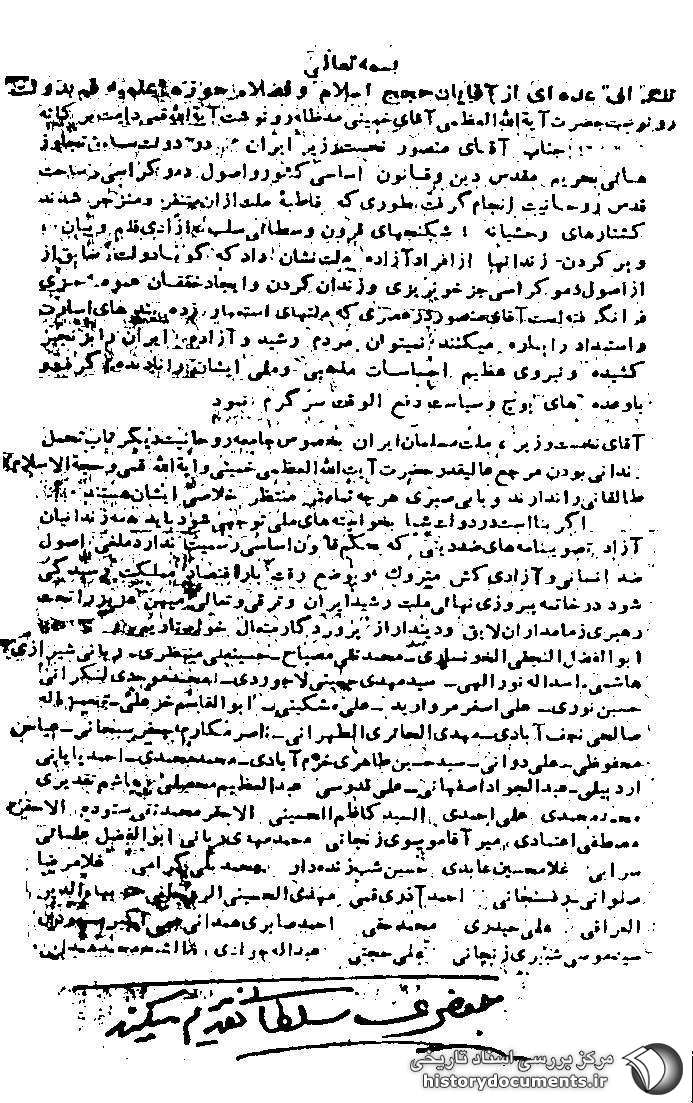 بسمه تعالی
تلگرافی عده ای از آقایان حجج اسلام وفضلاء حوزه علمیه قم بدولت
رونوشت حضرت آیة الله العظمی آقای خمینی مدظله رونوشت آیة الله قمی دامت برکاته
جناب آقای منصور نخست وزیر ایران در دولت سابق تجاوز
هائی بحریم مقدس دین وقانون اساسی کشور واصول دموکراسی وساحت
قدس روحانیت انجام گرفت بطوری که قاطبهٔ ملت ازان متنفر ومنزجر شدند
کشتارهای وحشیانه شکنجهای قرون وسطائی سلب آزادی قلم وبیان
وپر کردن زندانها ازافراد آزاده بملت نشان داد که گویا دولت سابق از
ازاصول دموکراسی جز خونریزی وزندان کردن وایجاد خفقان عمومی چیزی
فرا نگرفته است آقای منصور در عصری که ملتهای استعمار زده بندهای اسارت
واستبداد را پاره میکنند نمیتوان مردم رشید وآزاده ایران را بزنجیر
کشیده ونیروی عظیم احساسات مذهبی وملی ایشان را نادیده گرفته و
باوعده های پوچ وسیاست دفع الوقت سرگرم نمود
آقای نخست وزیر ، ملت مسلمان ایران بخصوص جامعه روحانیت دیگر تاب تحمل
زندانی بودن مرجع عالیقدر حضرت آیت الله العظمی خمینی وآیة الله قمی وحجة الاسلام آقای
طالقانی را ندارند وبابی صبری هر چه تمامتر منتظر خلاصی ایشان هستند
اگر بنا است در دولت شما بخواسته های ملی توجهی شود باید همه زندانیان
آزاد تصویبنامه های ضد دینی که بحکم قانون اساسی رسمیت ندارد ملغی اصول
ضد انسانی وآزادی کش متروک وبوضع رقت بار اقتصاد مملکت رسیدگی
شود در خاتمه پیروزی نهائی ملت رشید ایران وترقی وتعالی میهن عزیز را تحت
رهبری زمامداران لایق ودیندار از پروردگار متعال خواستاریم
ابوالفضل النجفی الخونساری - محمدتقی مصباح - حسینعلی منتظری - ربانی شیرازی
هاشمی - اسدالله نورالهی - سیدمهدی حسینی لاجوردی - محمد موحدی لنکرانی
حسین نوری - علی اصغر مروارید - علی مشکینی - ابوالقاسم خزعلی - نعمت الله
صالحی نجف آبادی - مهدی الحائری الطهرانی - ناصر مکارم - جعفر سبحانی - عباس
محفوظی - علی دوانی - سید حسین طاهری خرم آبادی - محمد محمدی - احمد پایانی
اردبیلی - عبدالجواد اصفهانی - علی قدوسی عبدالعظیم محصلی - هاشم تقدیری
محمد محمدی علی احمدی السید کاظم الحسینی الاحقر محمدتقی ستوده الاحقر
مصطفی اعتمادی میر آقا موسوی زنجانی محمد مهدی ربانی ابوالفضل علمائی
سرابی غلامحسین عابدی حسین شب زنده دار محمدعلی گرامی غلامرضا
صلواتی رفسنجانی احمد آذری قمی مهدی الحسینی الروحانی
العراقی علی حیدری محمد حقی احمد صابری همدانی علی اکبر مسعودی
سید موسی شبیری زنجانی علی حجتی عبدالله جوادی
تقدیم میکند
مرکز بررسی اسناد تاریخی
historydocuments.ir